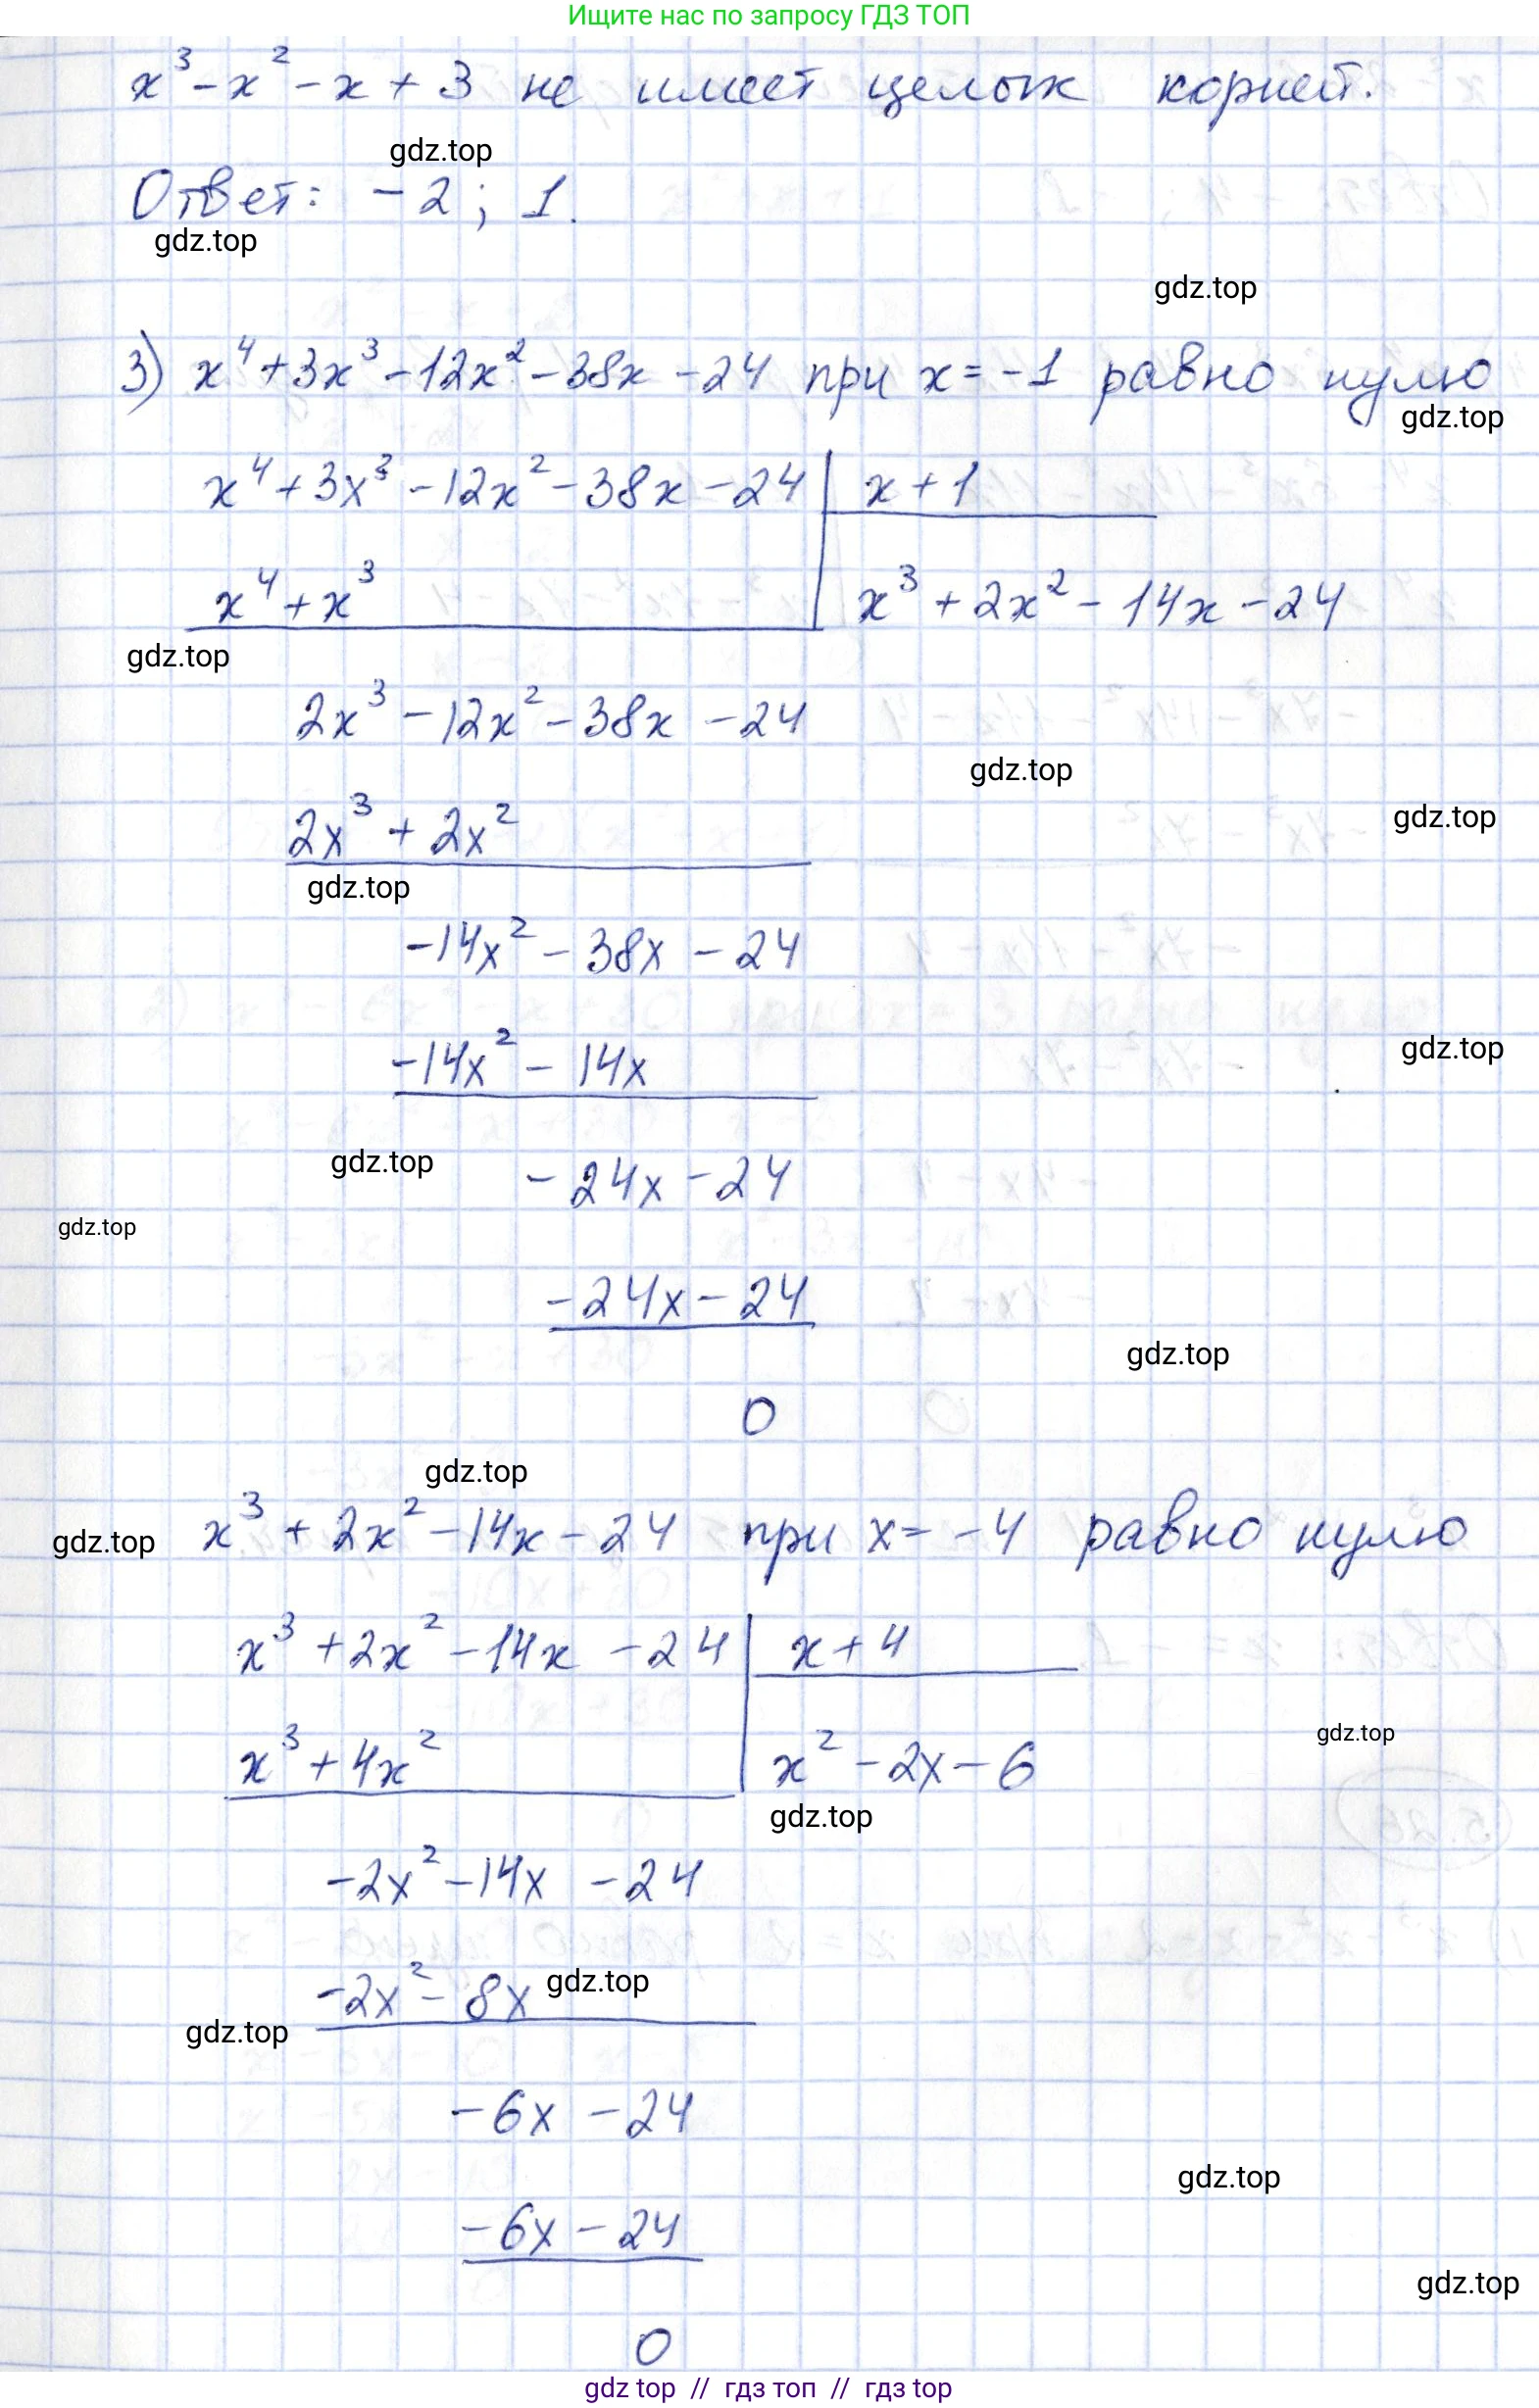 Ищите нас по запросу ГДЗ ТОП
x³ - x² - x + 3 не имеет целых корней.
gdz.top
Ответ: -2; 1.
gdz.top
gdz.top
3) x⁴ + 3x³ - 12x² - 38x - 24 при x = -1 равно нулю
gdz.top
x⁴ + 3x³ - 12x² - 38x - 24 | x + 1
x⁴ + x³ | x³ + 2x² - 14x - 24
gdz.top
2x³ - 12x² - 38x - 24
gdz.top
gdz.top
2x³ + 2x²
gdz.top
-14x² - 38x - 24
gdz.top
-14x² - 14x
gdz.top
-24x - 24
gdz.top
-24x - 24
gdz.top
0
gdz.top
gdz.top x³ + 2x² - 14x - 24 при x = -4 равно нулю
x³ + 2x² - 14x - 24 | x + 4
gdz.top
x³ + 4x² | x² - 2x - 6
gdz.top
-2x² - 14x - 24
-2x² - 8x gdz.top
gdz.top
-6x - 24
gdz.top
-6x - 24
gdz.top
0
gdz top // гдз топ // гдз top